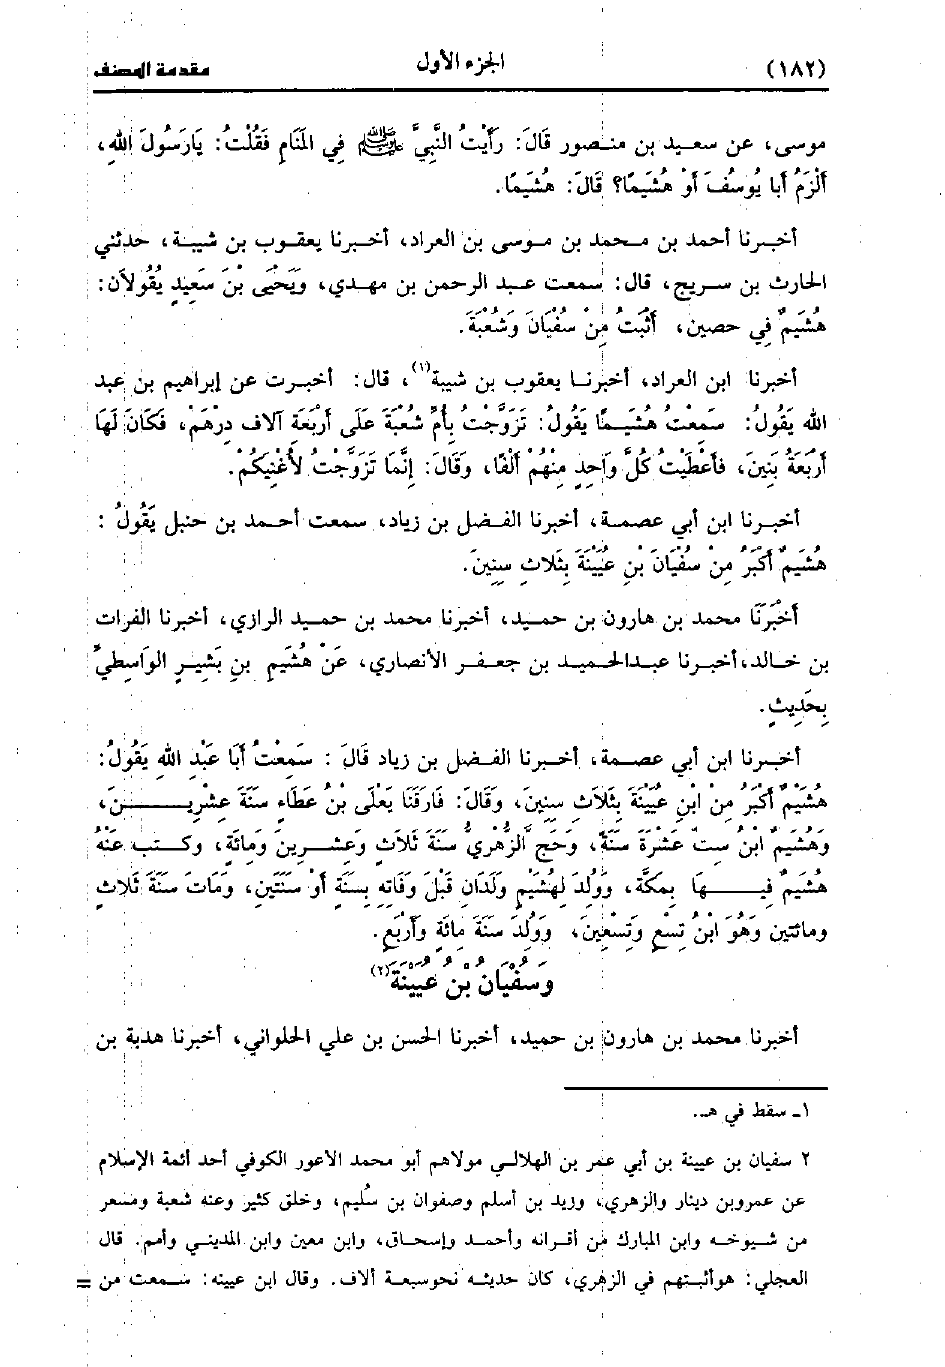 (١٨٢) الجزء الأول مقدمة المصنف
موسى، عن سعيد بن منصور قَالَ: رَأَيْتُ النَّبِيَّ ﷺ فِي الْمَنَامِ فَقُلْتُ: يَارَسُولَ اللهِ،
أَلْزَمُ أَبَا يُوسُفَ أَوْ هُشَيْمًا؟ قَالَ: هُشَيْمًا.
أخبرنا أحمد بن محمد بن موسى بن العراد، أخبرنا يعقوب بن شيبة، حدثني
الحارث بن سريج، قال: سمعت عبد الرحمن بن مهدي، وَيَحْيَى بْنَ سَعِيدٍ يَقُولاَن:
هُشَيْمٌ فِي حصين، أَثْبَتُ مِنْ سُفْيَانَ وَشُعْبَةَ.
أخبرنا ابن العراد، أخبرنا يعقوب بن شيبة(١)، قال: أخبرت عن إبراهيم بن عبد
الله يَقُولُ: سَمَعْتُ هُشَيْمًا يَقُولُ: تَزَوَّجْتُ بِأُمِّ شُعْبَةَ عَلَى أَرْبَعَةِ آلافِ دِرْهَمٍ، فَكَانَ لَهَا
أَرْبَعَةُ بَنِينَ، فَأَعْطَيْتُ كُلَّ وَاحِدٍ مِنْهُمْ أَلْفًا، وَقَالَ: إِنَّمَا تَزَوَّجْتُ لأُغْنِيَكُمْ.
أخبرنا ابن أبي عصمة، أخبرنا الفضل بن زياد، سمعت أحمد بن حنبل يَقُولُ :
هُشَيْمٌ أَكْبَرُ مِنْ سُفْيَانَ بْنِ عُيَيْنَةَ بِثَلاثِ سِنِينَ.
أَخْبَرَنَا محمد بن هارون بن حميد، أخبرنا محمد بن حميد الرازي، أخبرنا الفرات
بن خالد، أخبرنا عبدالحميد بن جعفر الأنصاري، عَنْ هُشَيْمِ بنِ بَشِيرٍ الْوَاسِطِيِّ
بِحَدِيثٍ.
أخبرنا ابن أبي عصمة، أخبرنا الفضل بن زياد قَالَ : سَمَعْتُ أَبَا عَبْدِ اللهِ يَقُولُ:
هُشَيْمٌ أَكْبَرُ مِنْ ابنِ عُيَيْنَةَ بِثَلاثِ سِنِينَ، وَقَالَ: فَارَقَنَا يَعْلَى بْنُ عَطَاءٍ سَنَةَ عِشْرِيـــنَ،
وَهُشَيْمٌ ابْنُ ستَ عَشْرَةَ سَنَةً، وَحَجَ الزُّهْرِيُّ سَنَةَ ثَلاثَ وَعشْرِينَ وَمِائَة، وَكتب عَنْهُ
هُشَيْمٌ فيـــهَا بِمَكَّةَ، وَوُلِدَ لِهُشَيْمٍ وَلَدَانِ قَبْلَ وَفَاتِهِ بِسَنَةٍ أَوْ سَنَتَيْنِ، وَمَاتَ سَنَةَ ثَلاثٍ
ومائتين وَهُوَ ابْنُ تِسْعٍ وَتِسْعِينَ، وَوُلِدَ سَنَةَ مائَةٍ وَأَرْبَعٍ.
وَسُفْيَانُ بْنُ عُيَيْنَةَ(٢)
أخبرنا محمد بن هارون بن حميد، أخبرنا الحسن بن علي الحلواني، أخبرنا هدبة بن
١ـ سقط في هـ.
٢ سفيان بن عيينة بن أبي عمر بن الهلالي مولاهم أبو محمد الاعور الكوفي أحد أئمة الإسلام
عن عمروبن دينار والزهري، وزيد بن أسلم وصفوان بن سُليم، وخلق كثير وعنه شعبة ومسعر
من شيوخه وابن المبارك من أقرانه وأحمد وإسحاق، وابن معين وابن المديني وأمم. قال
العجلي: هوأثبتهم في الزهري، كان حديثه نحوسبعة ألاف. وقال ابن عيينه: سمعت من =